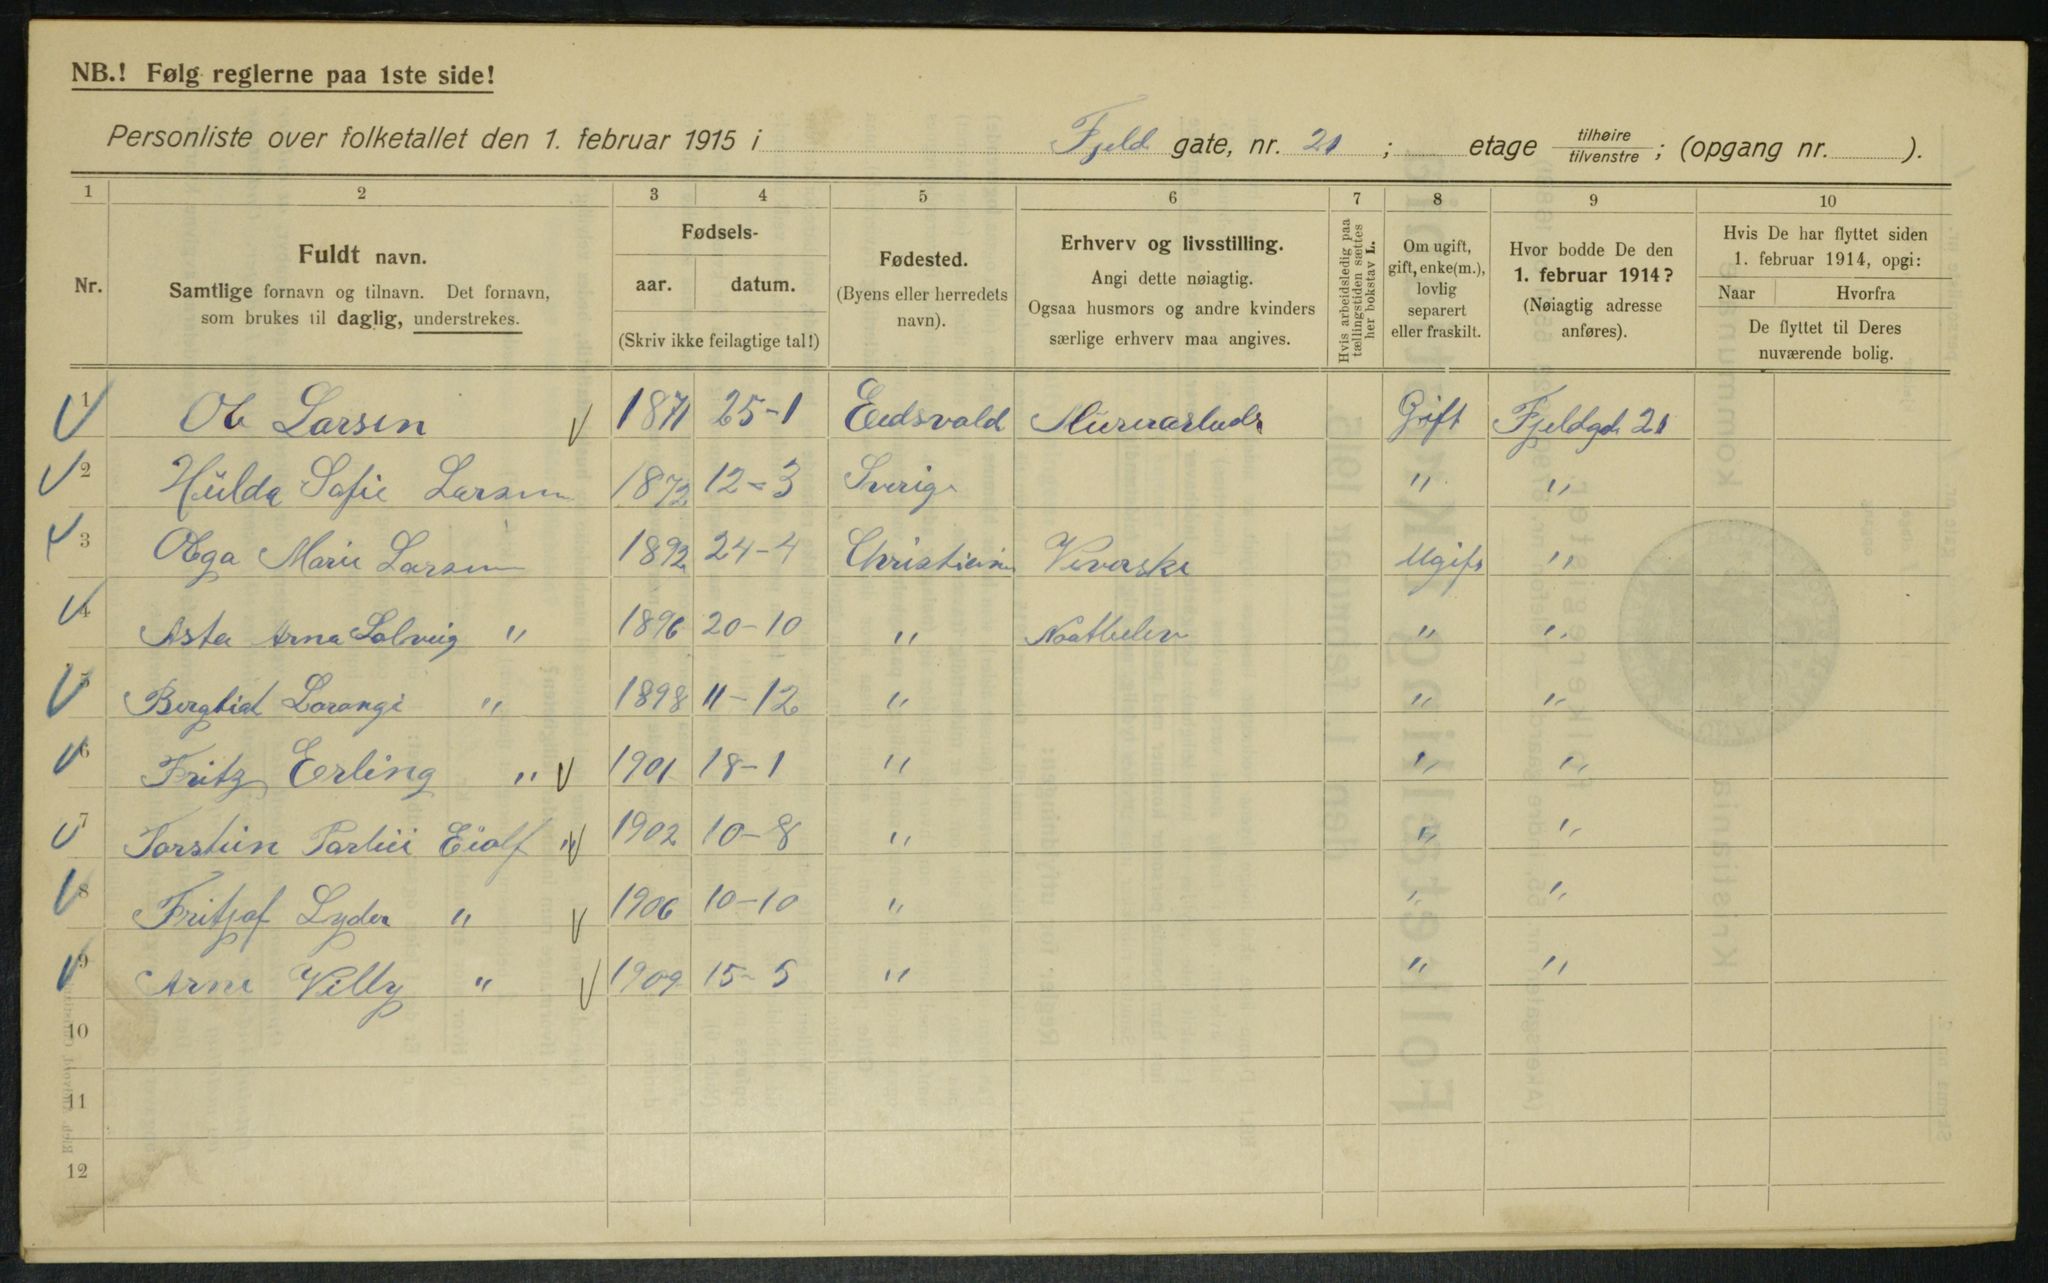 NB.! Følg reglerne paa 1ste side!
Personliste over folketallet den 1. februar 1915 i Fjeld gate, nr. 21 ; etage tilhøire / tilvenstre ; (opgang nr. ).
1 2 3 4 5 6 7 8 9 10
Nr.
Fuldt navn.
Samtlige fornavn og tilnavn. Det fornavn,
som brukes til daglig, understrekes.
Fødsels-
aar. datum.
(Skriv ikke feilagtige tal!)
Fødested.
(Byens eller herredets
navn).
Erhverv og livsstilling.
Angi dette nøiagtig.
Ogsaa husmors og andre kvinders
særlige erhverv maa angives.
Hvis arbeidsledig paa
tællingstiden sættes
her bokstav L.
Om ugift,
gift, enke(m.),
lovlig
separert
eller fraskilt.
Hvor bodde De den
1. februar 1914?
(Nøiagtig adresse
anføres).
Hvis De har flyttet siden
1. februar 1914, opgi:
Naar Hvorfra
De flyttet til Deres
nuværende bolig.
1 Ole Larsen 1871 25-1 Eidsvold Gift Fjeldgd. 21
2 Hulda Sofie Larsen 1872 12-3 Sverig " "
3 Olga Marie Larsen 1892 24-4 Christiania Ugift "
4 Asta Arna Solveig " 1896 20-10 " " "
5 Bergliot " 1898 11-12 " " "
6 Fritz Erling " 1901 18-1 " " "
7 Torstein Eiolf " 1902 10-8 " " "
8 Fritjof Lyder " 1906 10-10 " " "
9 Arne Villy " 1909 15-5 " " "
10
11
12